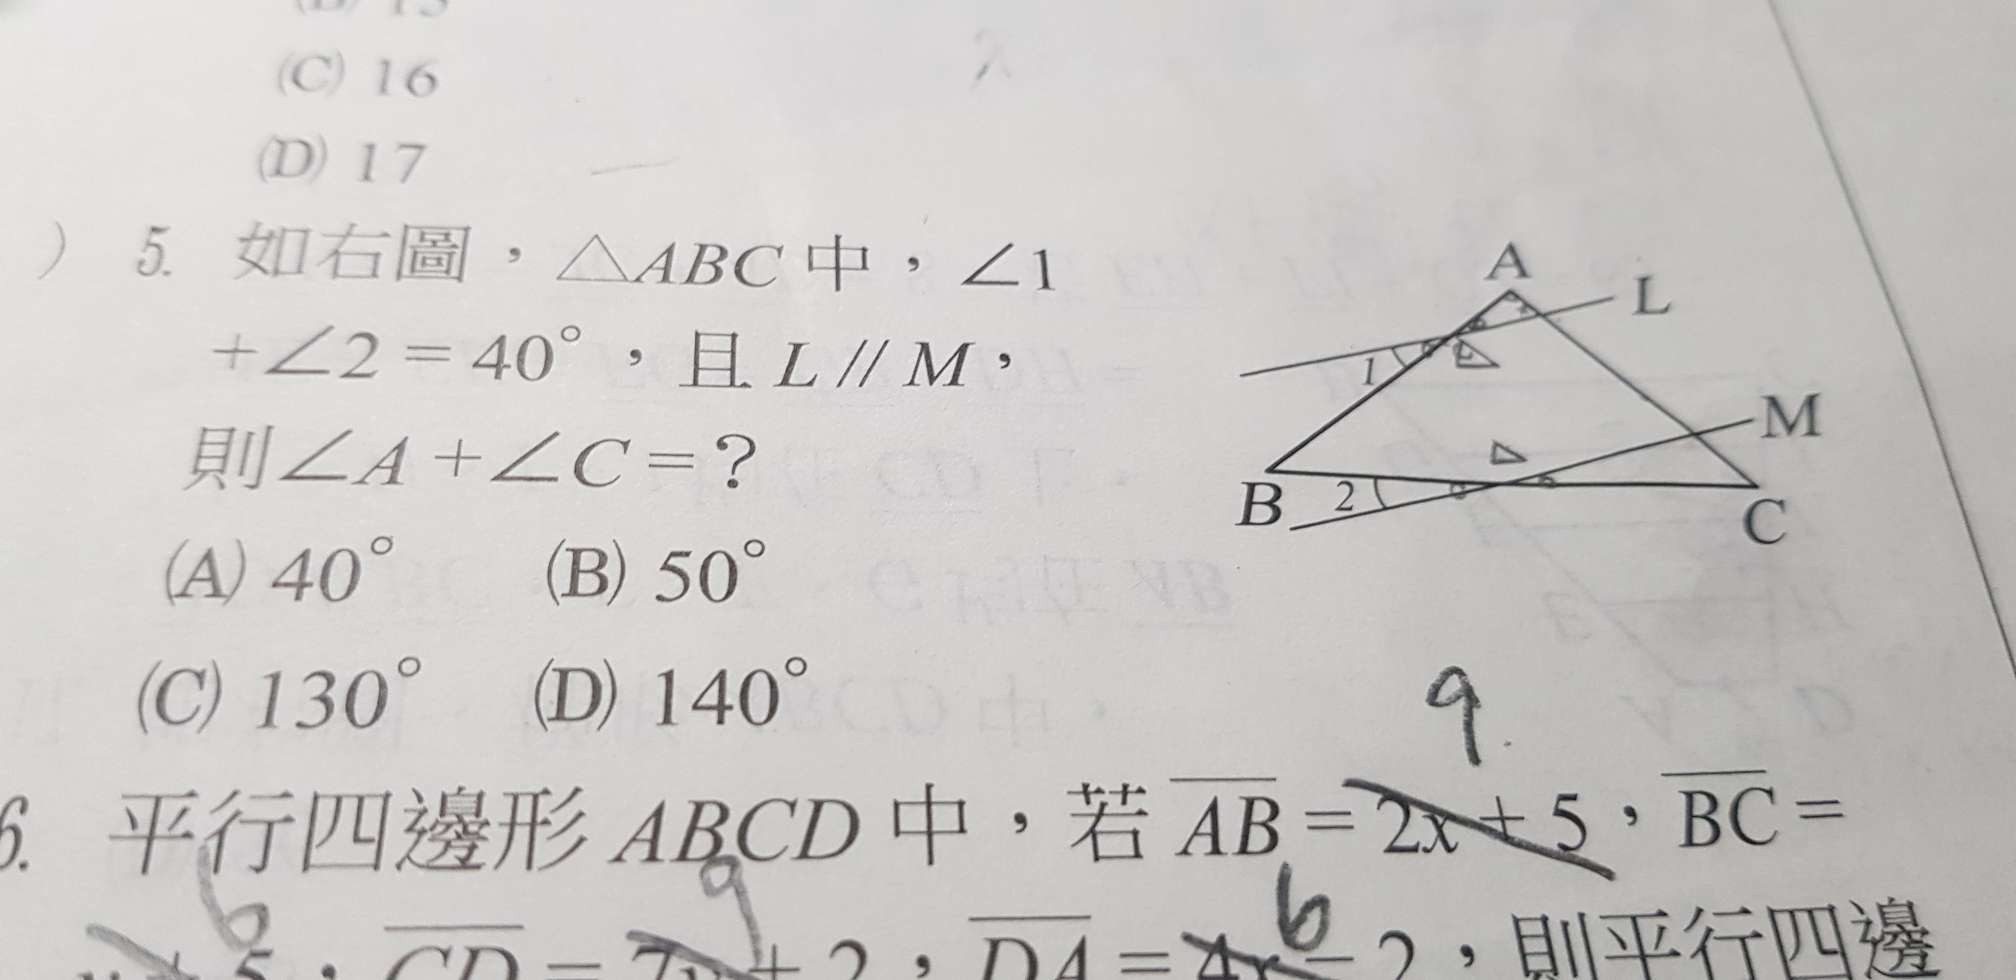 (C) 16
(D) 17
) 5. 如右圖，△ABC 中，∠1
+∠2 = 40°，且 L // M，
則∠A +∠C = ?
(A) 40° (B) 50°
(C) 130° (D) 140°
A
L
1
M
B
2
C
9
6. 平行四邊形 ABCD 中，若 \overline{AB} = 2x + 5，\overline{BC} =
6 9 6
+ 5，\overline{CD} = 7x + 2，\overline{DA} = 4x − 2，則平行四邊